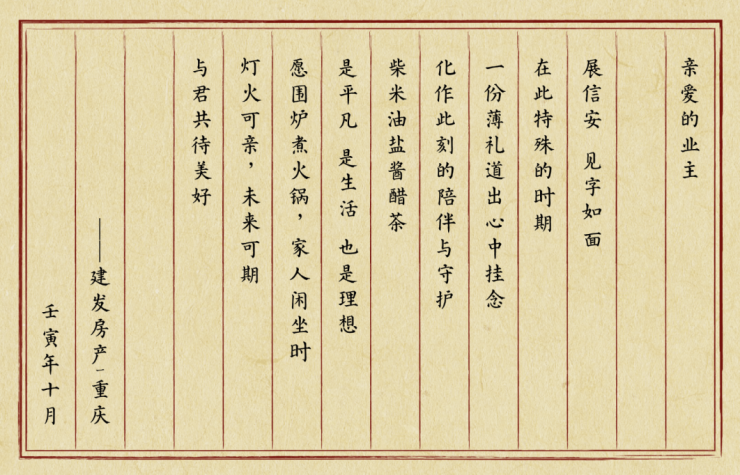 亲爱的业主
展信安 见字如面
在此特殊的时期
一份薄礼道出心中挂念
化作此刻的陪伴与守护
柴米油盐酱醋茶
是平凡 是生活 也是理想
愿围炉煮火锅，家人闲坐时
灯火可亲，未来可期
与君共待美好
——建发房产-重庆
壬寅年十月